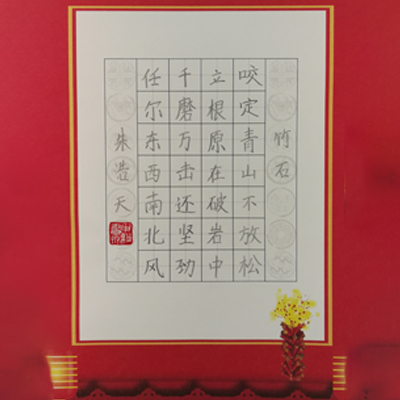 竹石
咬定青山不放松
立根原在破岩中
千磨万击还坚劲
任尔东西南北风
朱浩天